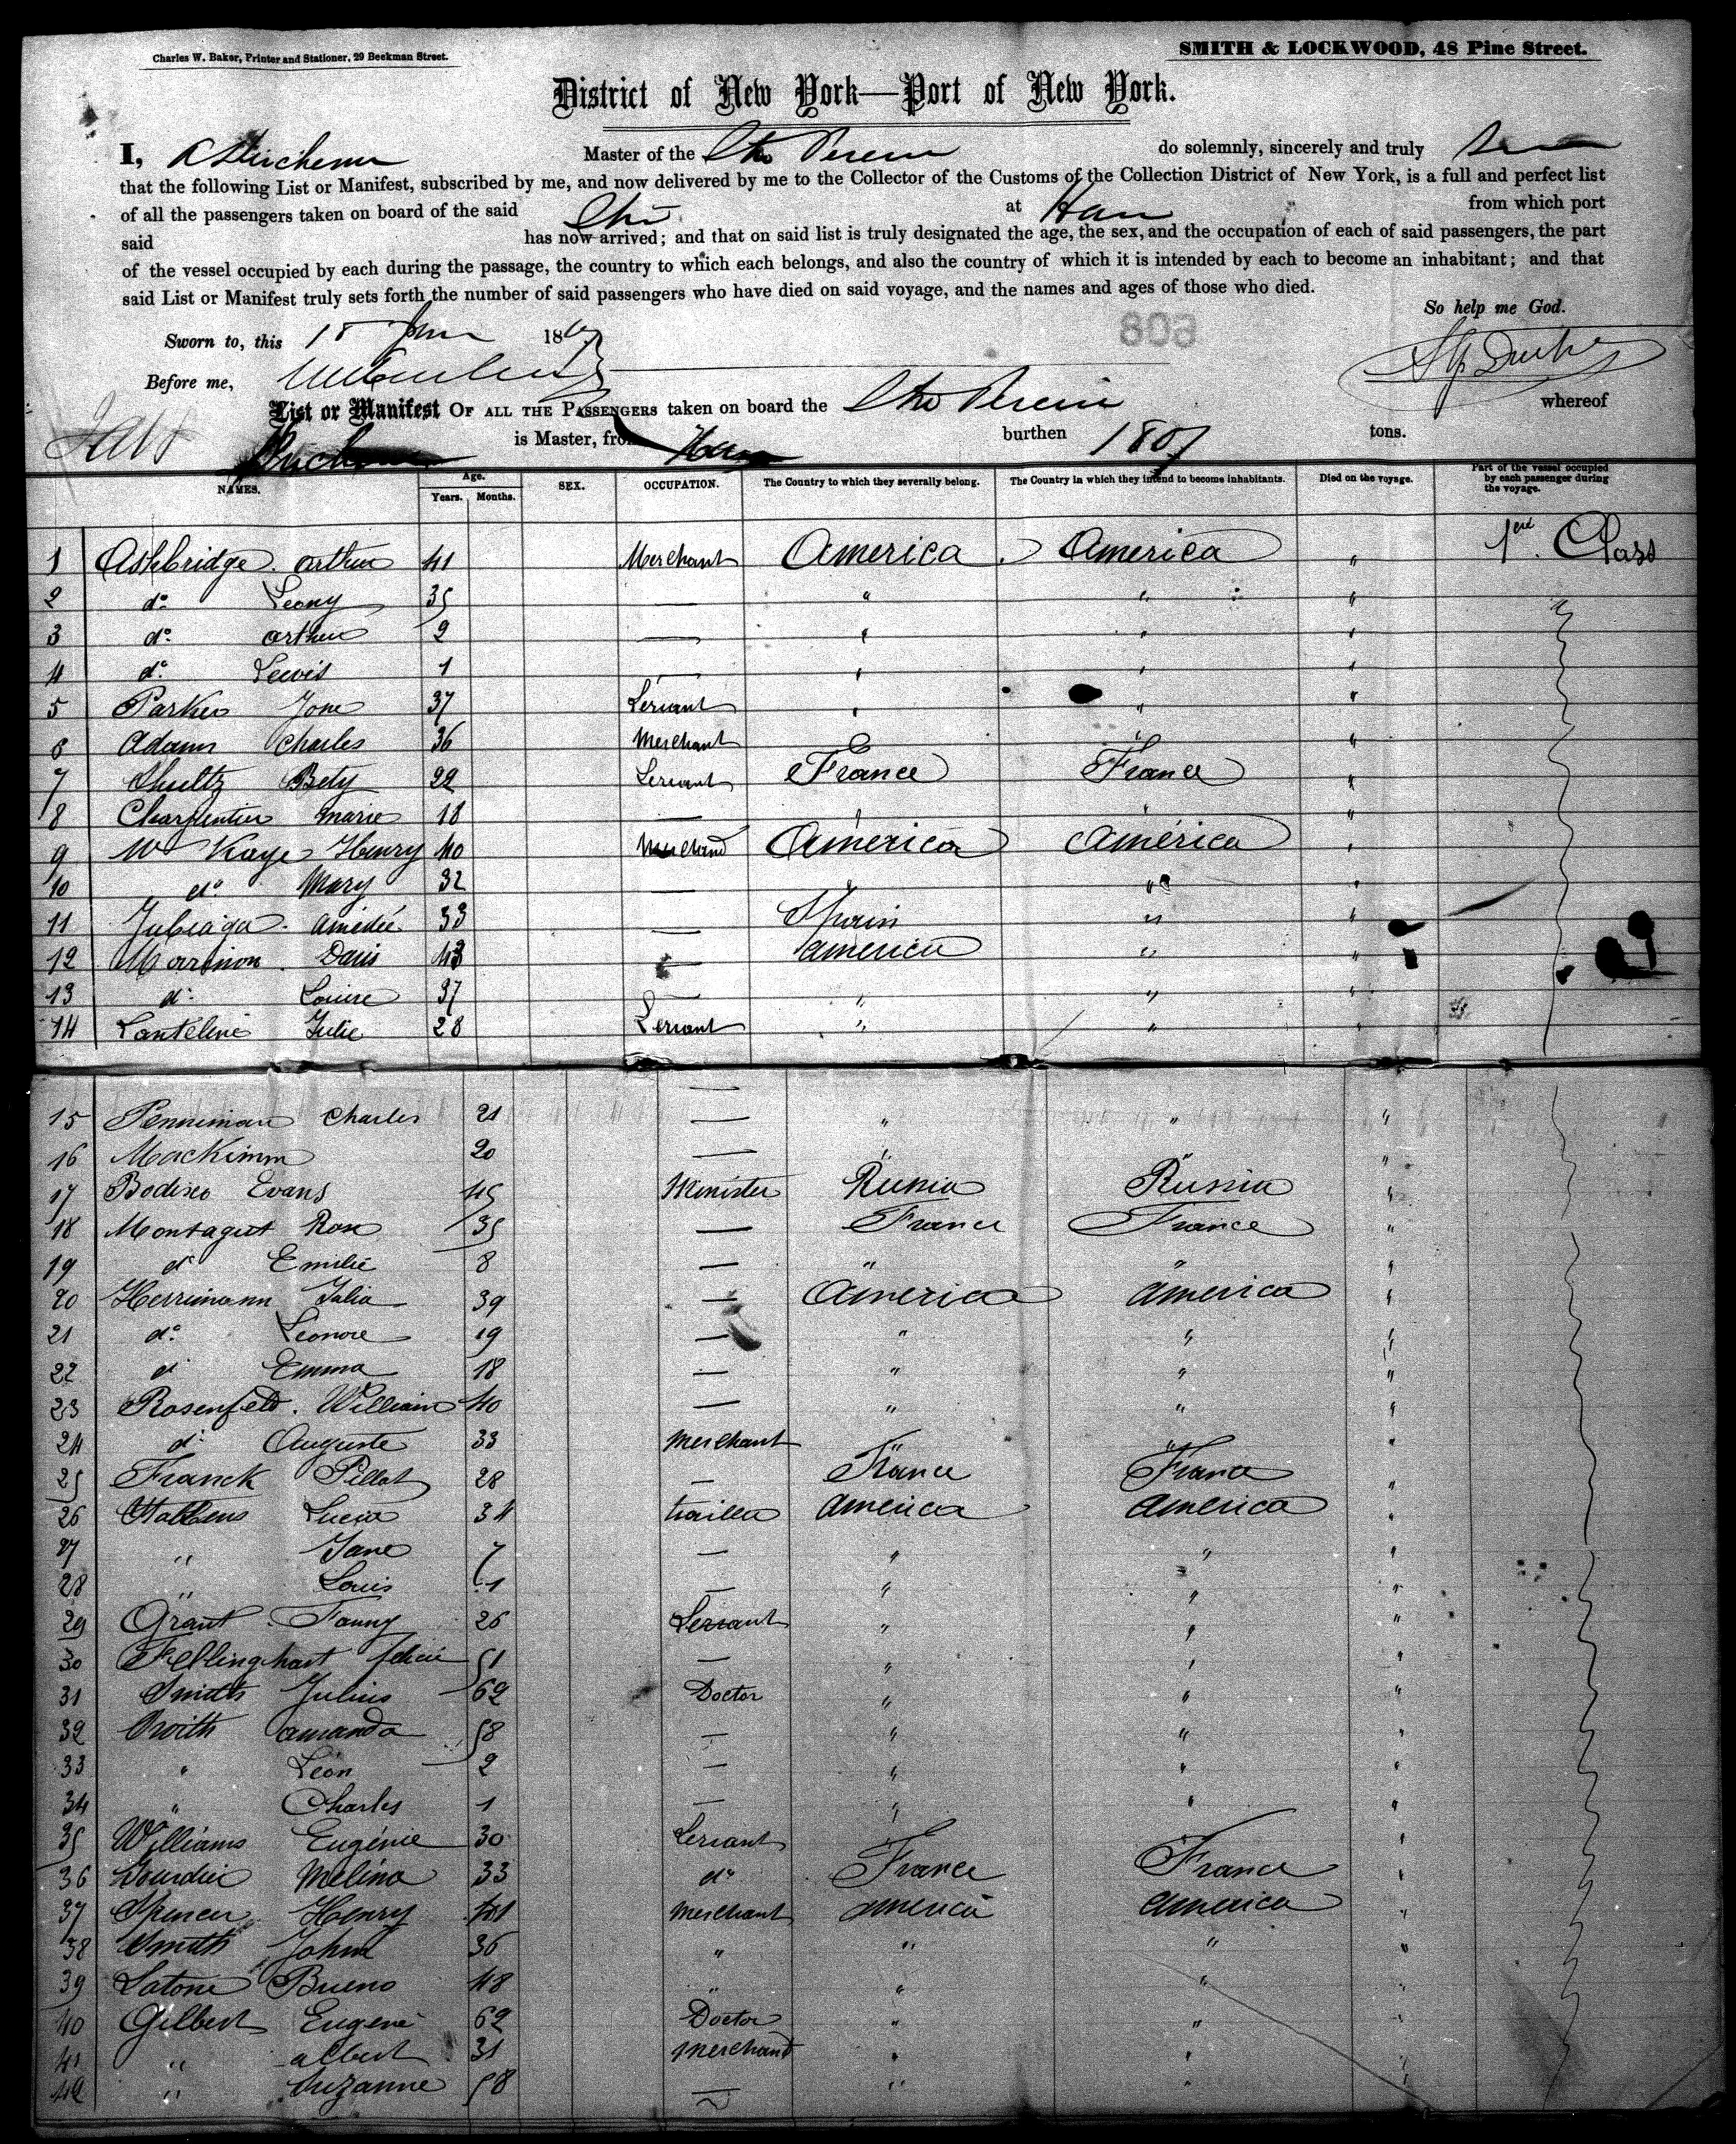 Charles W. Baker, Printer and Stationer, 29 Beekman Street.
SMITH & LOCKWOOD, 48 Pine Street.
District of New York—Port of New York.
I, Master of the do solemnly, sincerely and truly
that the following List or Manifest, subscribed by me, and now delivered by me to the Collector of the Customs of the Collection District of New York, is a full and perfect list
of all the passengers taken on board of the said at from which port
said has now arrived; and that on said list is truly designated the age, the sex, and the occupation of each of said passengers, the part
of the vessel occupied by each during the passage, the country to which each belongs, and also the country of which it is intended by each to become an inhabitant; and that
said List or Manifest truly sets forth the number of said passengers who have died on said voyage, and the names and ages of those who died.
So help me God.
Sworn to, this 18 186
803
Before me,
List or Manifest OF ALL THE PASSENGERS taken on board the whereof
is Master, from burthen tons.
NAMES. Age. Years. Months. SEX. OCCUPATION. The Country to which they severally belong. The Country in which they intend to become inhabitants. Died on the voyage. Part of the vessel occupied by each passenger during the voyage.
1 Ashbridge Arthur 41 Merchant America America " 1ere Class
2 do Leony 35 — " " "
3 do Arthur 2 — " " "
4 do Lewis 1 — " " "
5 Parker Jone 37 Servant " " "
6 Adams Charles 36 Merchant " " "
7 Shultz Bety 22 Servant France France "
8 Charpentier Marie 18 — " " "
9 Kaye Henry 40 Merchand America America "
10 do Mary 32 — " " "
11 Amédée 33 — Spain " "
12 Davis 43 — America " "
13 do Louise 37 — " " "
14 Lanteline Julie 28 Servant " " "
15 Penniman Charles 21 — " " "
16 MacKimm 20 — " " "
17 Bodisco Evans 45 Minister Russia Russia "
18 Montagut Rose 35 — France France "
19 do Emilie 8 — " " "
20 Herrimann Julia 39 — America America "
21 do Leonore 19 — " " "
22 do Emma 18 — " " "
23 Rosenfeld William 40 — " " "
24 do Auguste 33 Merchant " " "
25 Franck Pillot 28 — France France "
26 Lucia 34 America America "
27 " Jane 7 — " " "
28 " Louis 1 — " " "
29 Grant Fanny 26 Servant " " "
30 51 — " " "
31 Smith Julius 62 Doctor " " "
32 Amanda 58 — " " "
33 " Léon 2 — " " "
34 " Charles 1 — " " "
35 Williams Eugénie 30 Servant " " "
36 Melina 33 do France France "
37 Spencer Henry 41 Merchant America America "
38 Smith John 36 " " " "
39 Latone Bueno 48 " " " "
40 Gilbert Eugene 62 Doctor " " "
41 " Albert 31 Merchand " " "
42 " Suzanne 58 — " " "